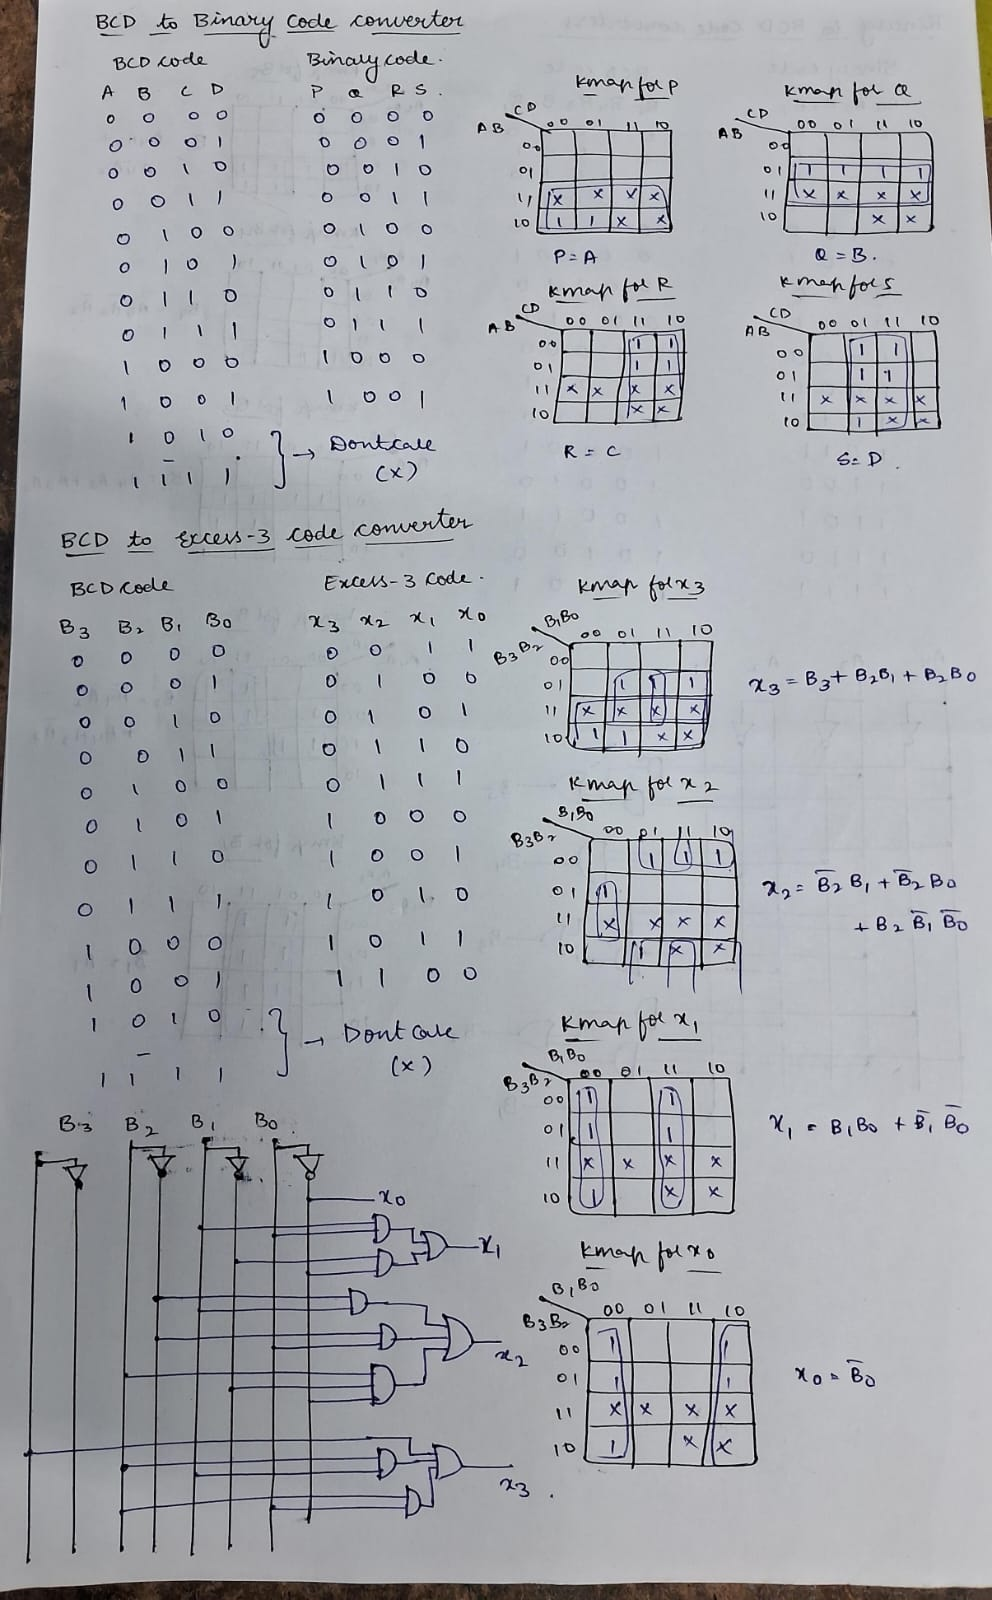 BCD to Binary Code converter
BCD code Binary code.
A B C D P Q R S.
0 0 0 0 0 0 0 0
0 0 0 1 0 0 0 1
0 0 1 0 0 0 1 0
0 0 1 1 0 0 1 1
0 1 0 0 0 1 0 0
0 1 0 1 0 1 0 1
0 1 1 0 0 1 1 0
0 1 1 1 0 1 1 1
1 0 0 0 1 0 0 0
1 0 0 1 1 0 0 1
1 0 1 0
1 1 1 1
} → Dontcare
(x)
Kmap for P
CD
AB 00 01 11 10
00
01
11 x x x x
10 1 1 x x
P = A
Kmap for Q
CD
AB 00 01 11 10
00
01 1 1 1 1
11 x x x x
10 x x
Q = B.
Kmap for R
CD
AB 00 01 11 10
00 1 1
01 1 1
11 x x x x
10 x x
R = C
Kmap for S
CD
AB 00 01 11 10
00 1 1
01 1 1
11 x x x x
10 1 x x
S = D.
BCD to Excess-3 code converter
BCD Code Excess-3 Code.
B3 B2 B1 B0 x3 x2 x1 x0
0 0 0 0 0 0 1 1
0 0 0 1 0 1 0 0
0 0 1 0 0 1 0 1
0 0 1 1 0 1 1 0
0 1 0 0 0 1 1 1
0 1 0 1 1 0 0 0
0 1 1 0 1 0 0 1
0 1 1 1 1 0 1 0
1 0 0 0 1 0 1 1
1 0 0 1 1 1 0 0
1 0 1 0
1 1 1 1
} → Dont care
(x)
Kmap for x3
B1B0
B3B2 00 01 11 10
00
01 1 1 1
11 x x x x
10 1 1 x x
x3 = B3 + B2B1 + B2B0
Kmap for x2
B1B0
B3B2 00 01 11 10
00 1 1 1
01 1
11 x x x x
10 1 x x
x2 = B̅2 B1 + B̅2 B0
+ B2 B̅1 B̅0
Kmap for x1
B1B0
B3B2 00 01 11 10
00 1 1
01 1 1
11 x x x x
10 1 x x
x1 = B1B0 + B̅1 B̅0
Kmap for x0
B1B0
B3B2 00 01 11 10
00 1 1
01 1 1
11 x x x x
10 1 x x
x0 = B̅0
B3 B2 B1 B0
x0
x1
x2
x3.